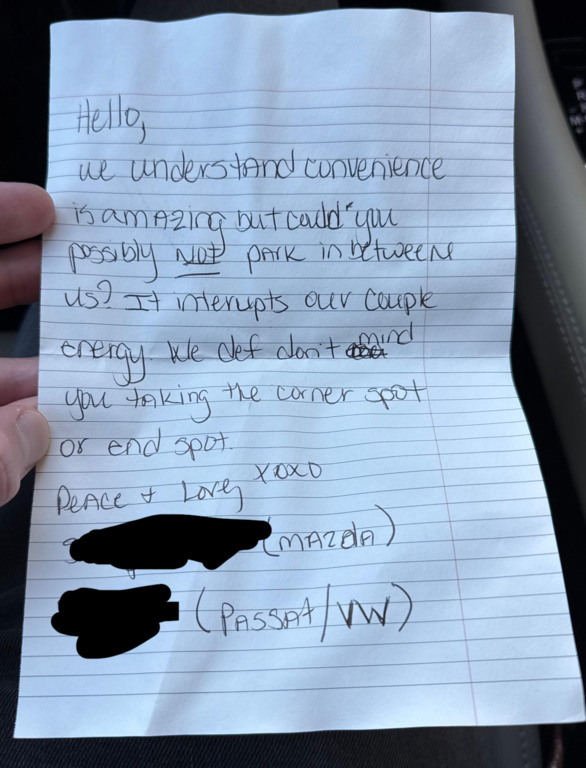 Hello,
we understand convenience
is amazing but could you
possibly NOT park in between
us? It interupts our couple
energy. We def don't mind
you taking the corner spot
or end spot.
Peace + Love, XOXO
(MAZdA)
(PASSAt/VW)